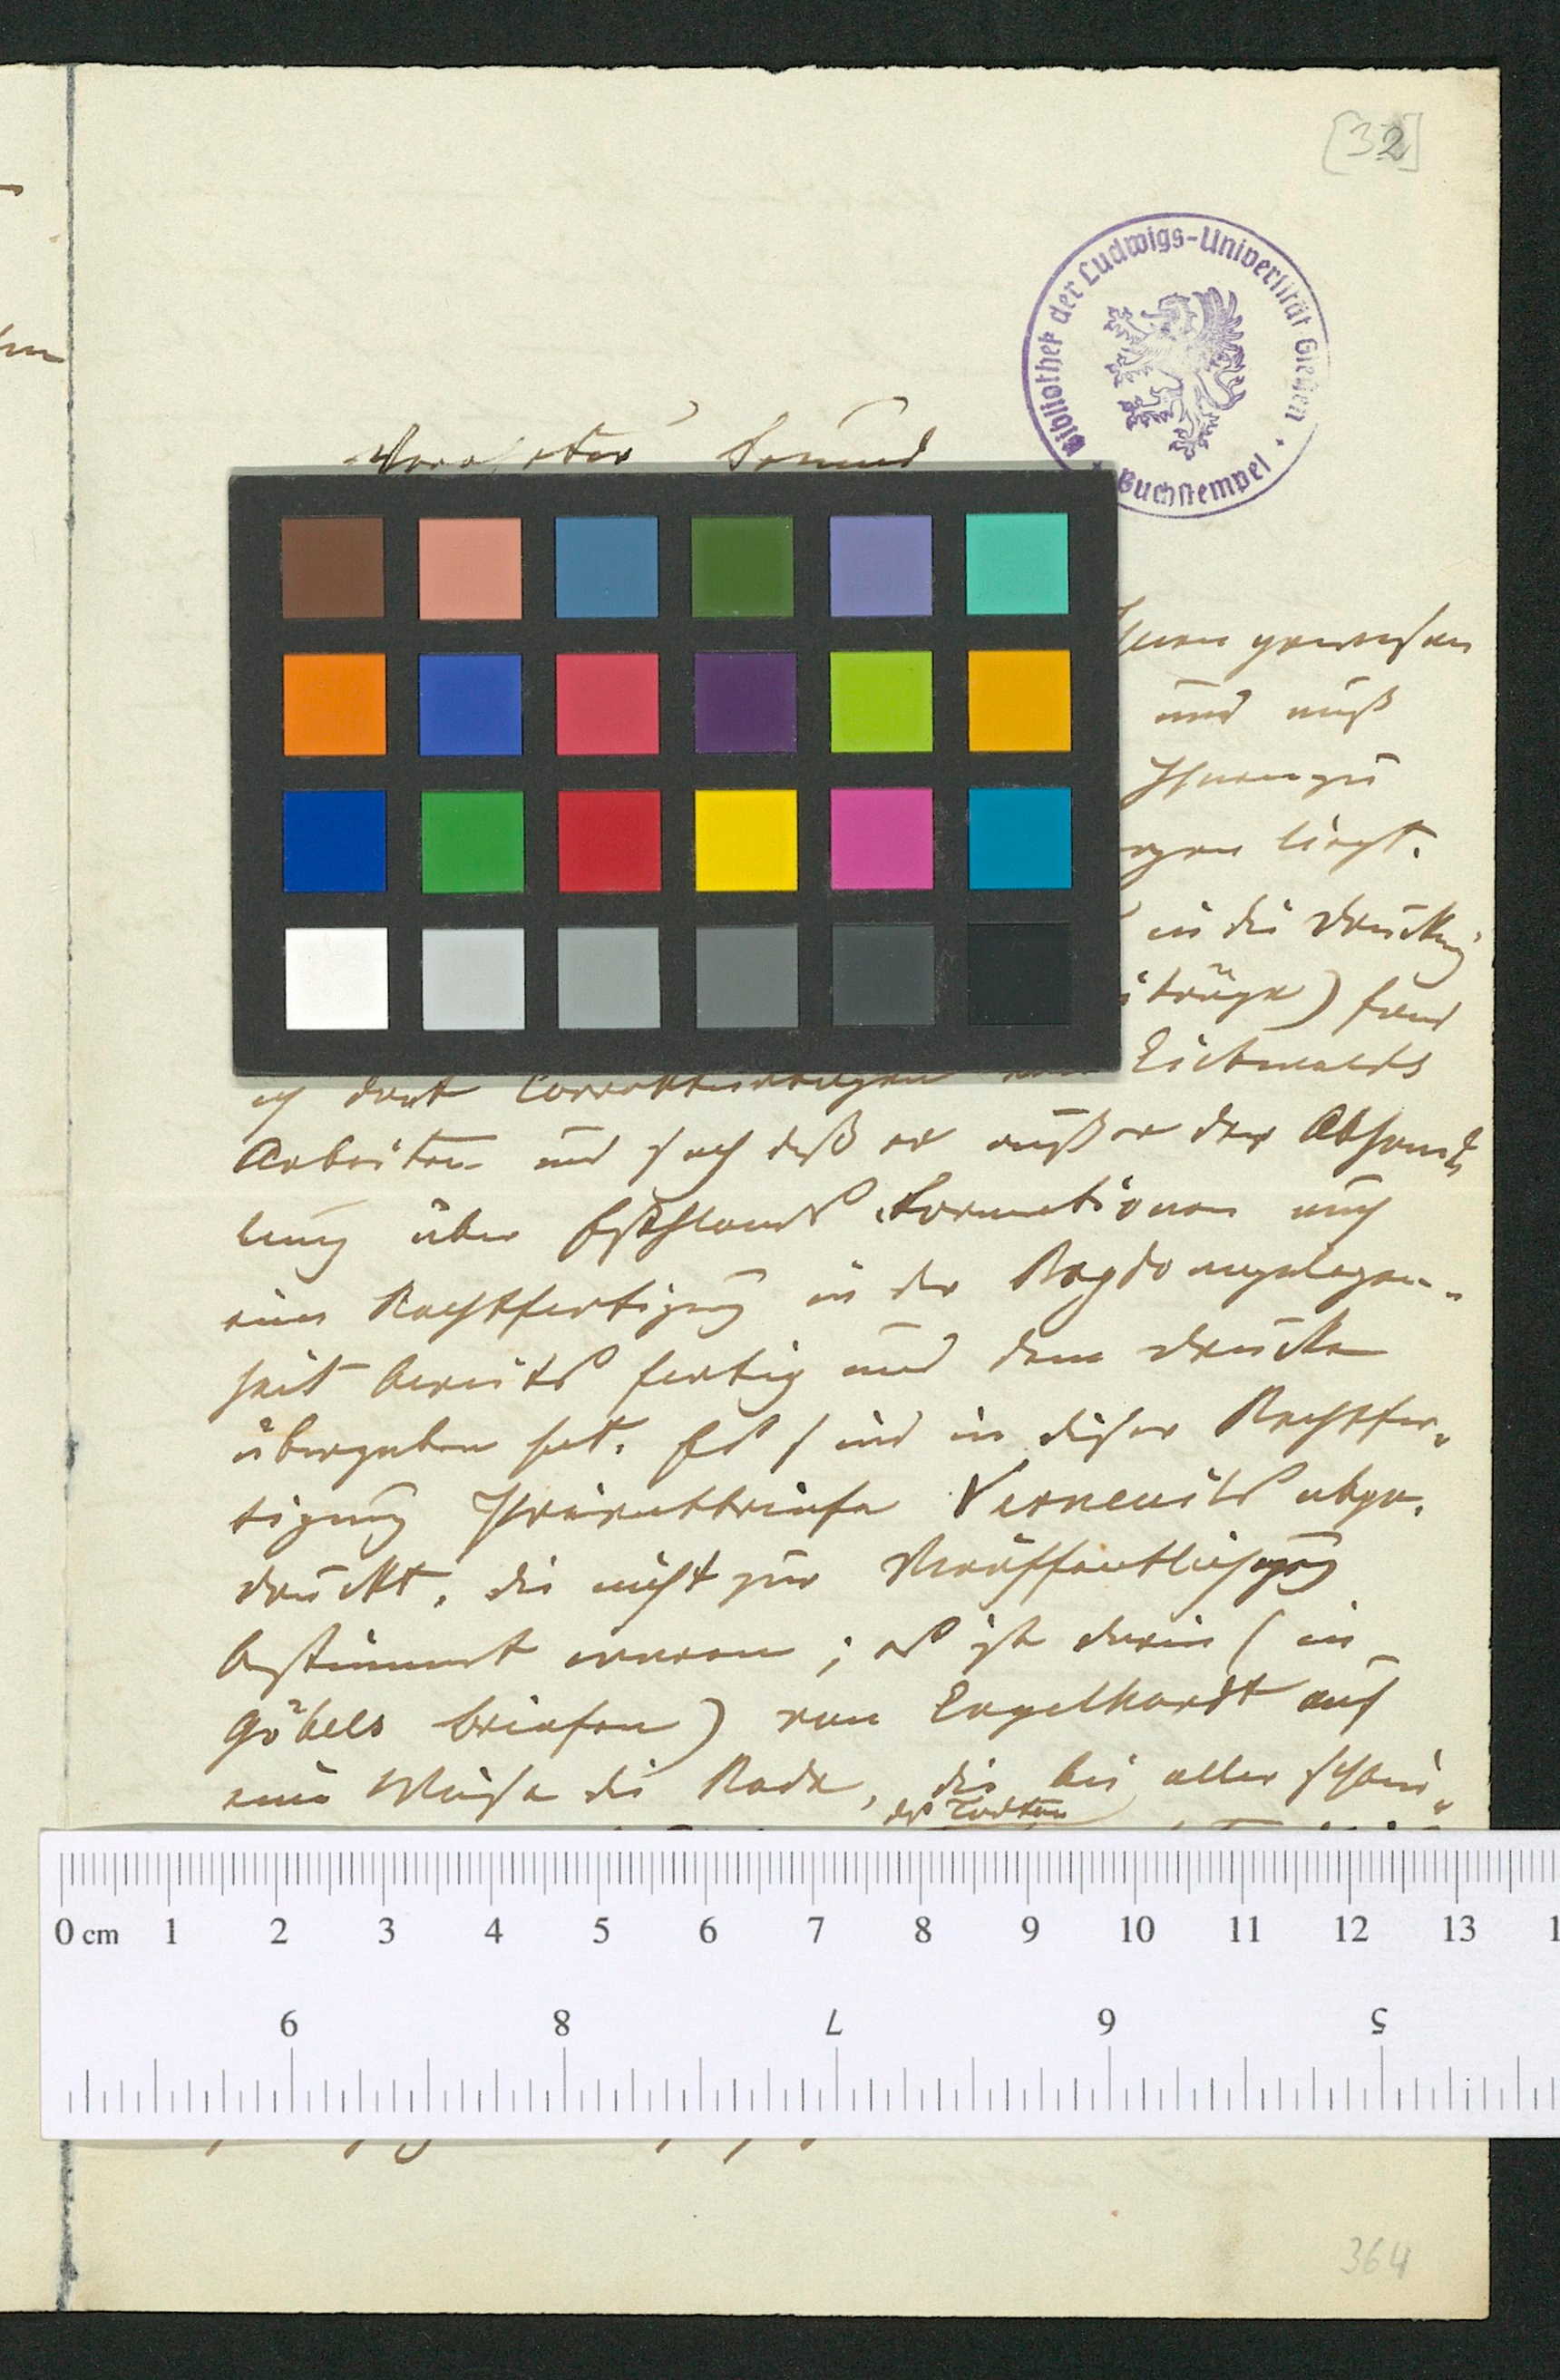 [32]
Bibliothek der Ludwigs-Universität Gießen
Buchstempel
Verehrter Freund
Ihnen gewesen
und muß
Ihnen zu
liegt.
in die Druckerei
fand
ich dort Correkturbogen von Eichwalds
Arbeiten und sah daß er außer der Abhand
lung über Esthlands Formationen auch
eine Rechtfertigung in der Bogdoangelegen-
heit bereits fertig und dem Drucke
übergeben hat. Es sind in dieser Rechtfer-
tigung Privatbriefe Verneuils abge-
druckt, die nicht zur Veröffentlichung
bestimmt waren; es ist darin (in
Göbels Briefen) von Engelhardt auf
eine Weise die Rede, die bei aller schein-
des Todten
0 cm 1 2 3 4 5 6 7 8 9 10 11 12 13 1
9 8 7 6 5
364